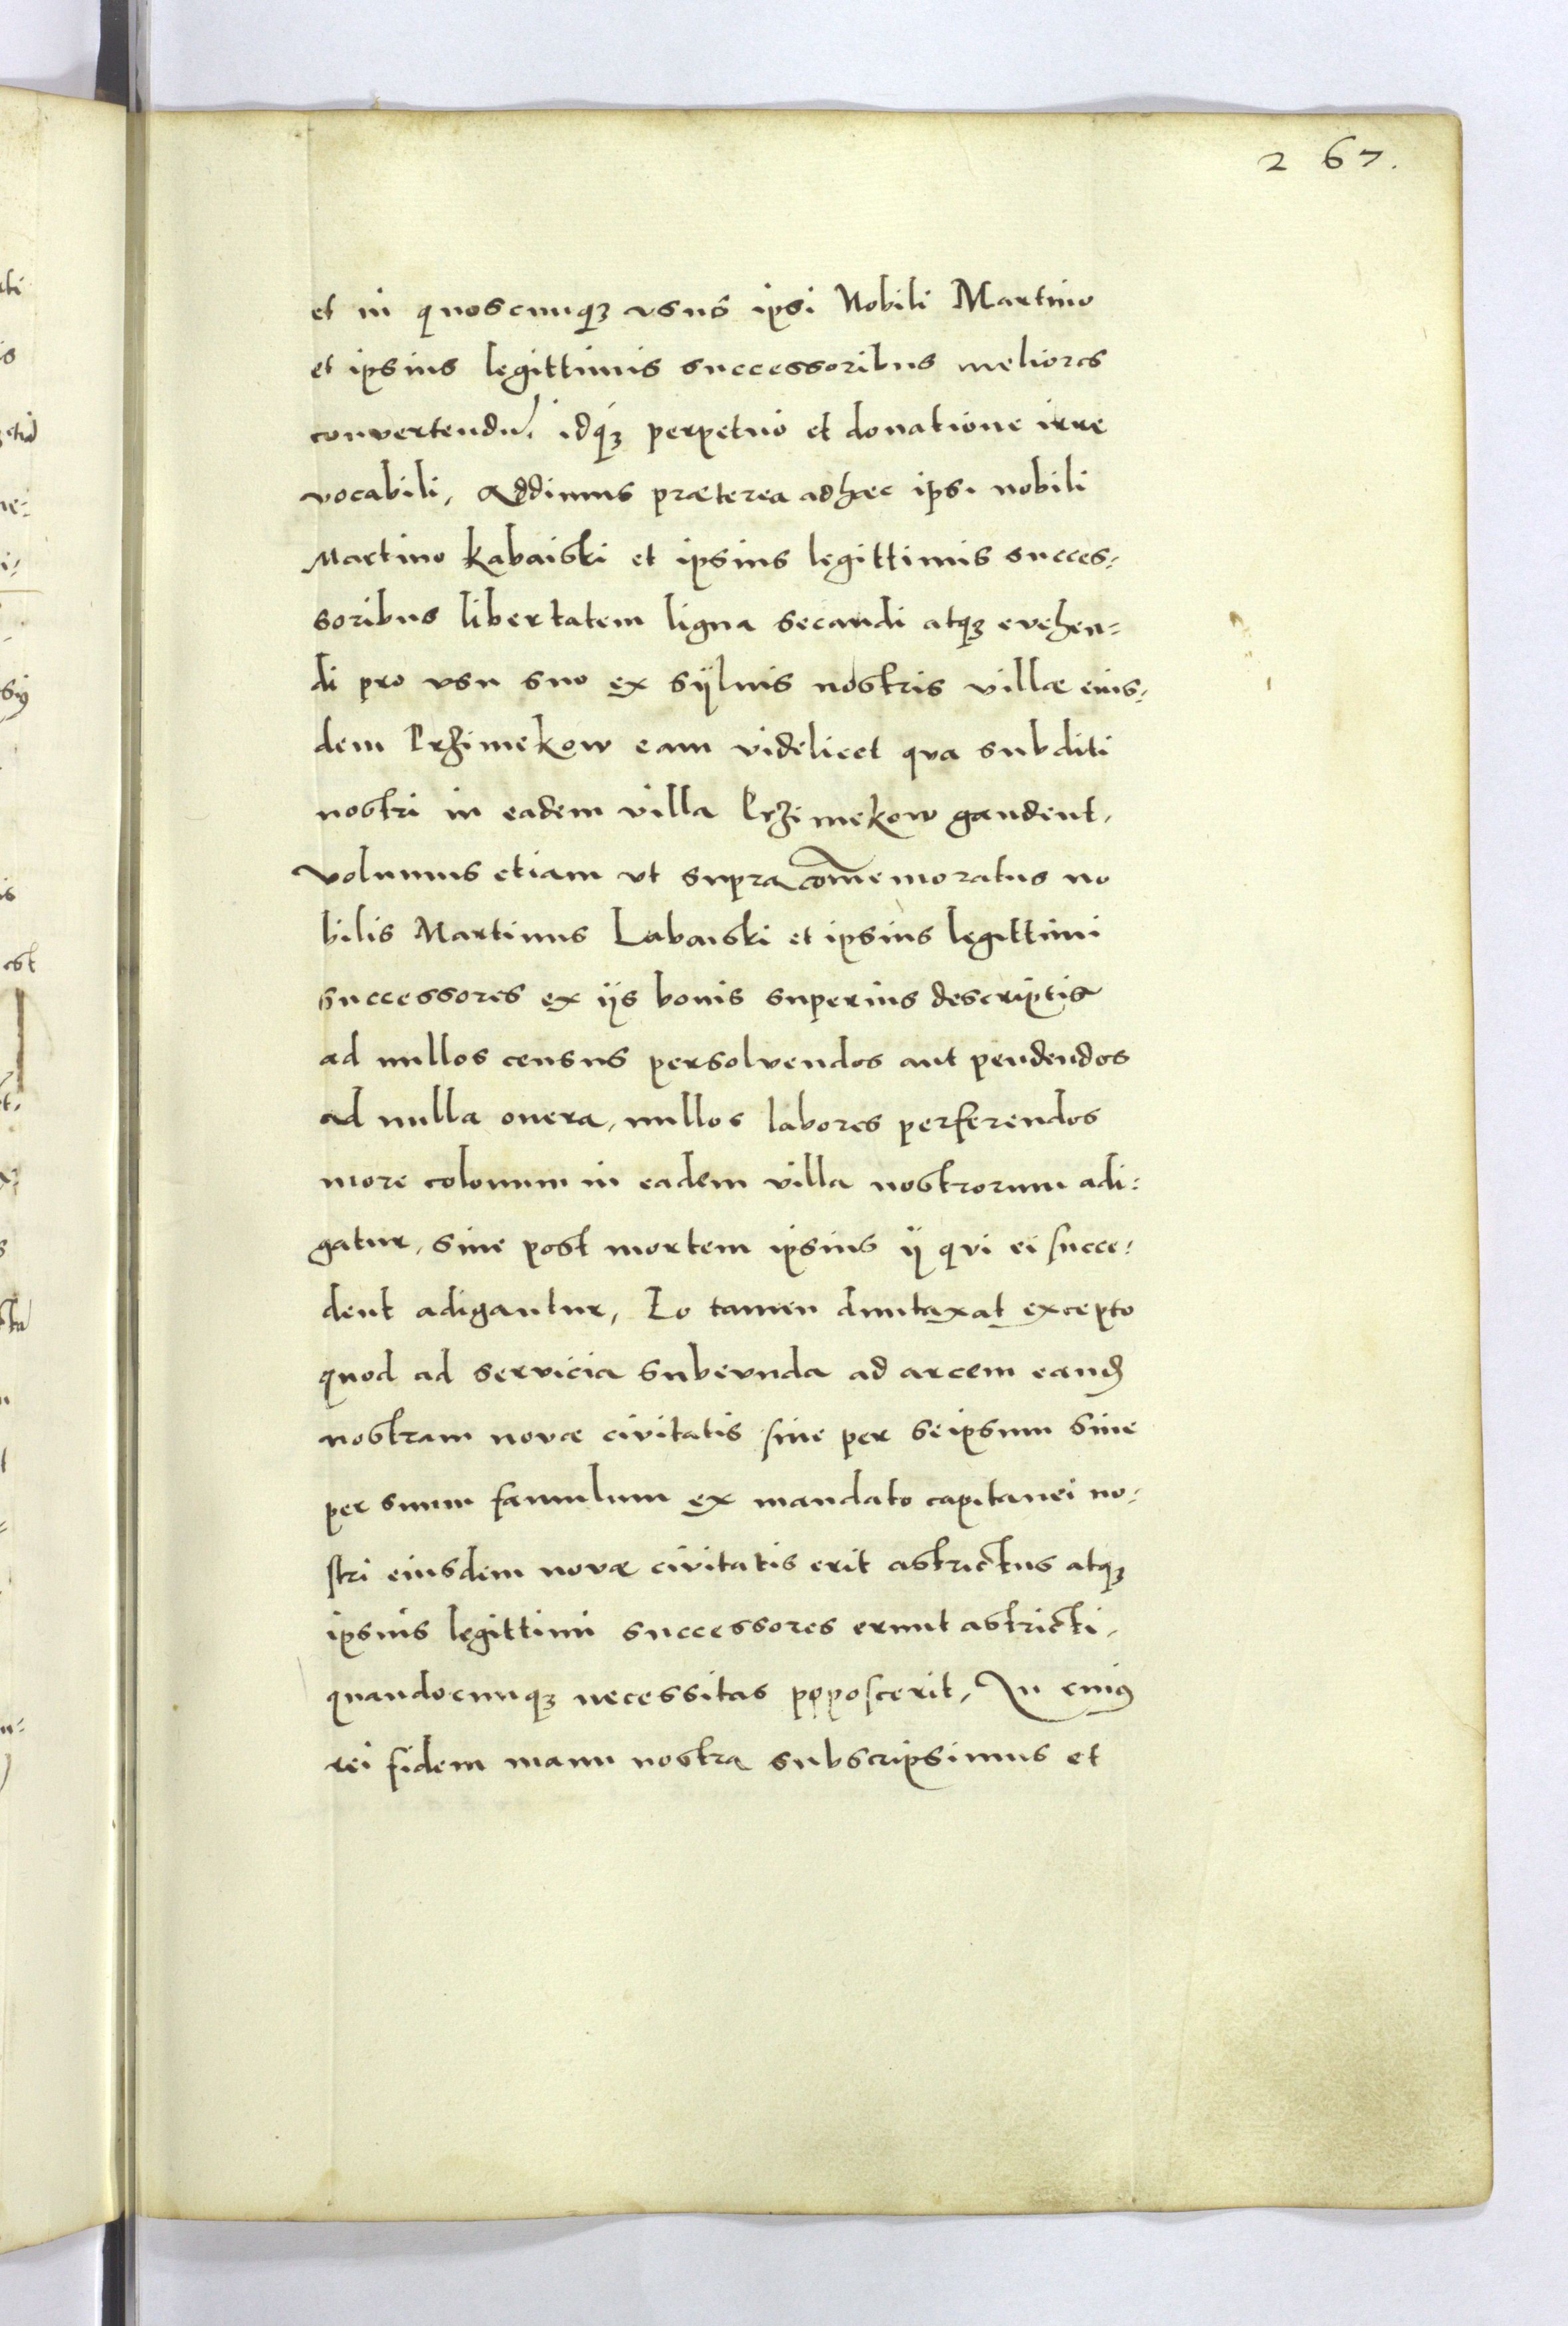 267.
et in quoscunqꝫ vsus ipsi Nobili Martino
et ipsius legittimis successoribus meliores
convertendũ. idqꝫ perpetuo et donatione irre
vocabili, Addimus præterea adhæc ipsi nobili
Martino Kabaiski et ipsius legittimis succes,
soribus libertatem ligna secandi atqꝫ evehen=
di pro vsu suo ex sÿluis nostris villæ eius,
dem Pržimekow eam videlicet qva subditi
nostri in eadem villa Pržimekow gaudent,
volumus etiam vt supra com̃emoratus no
bilis Martinus Labaiski et ipsius legittimi
successores ex ijs bonis superius descriptis
ad nullos census persolvendos aut pendendos
ad nulla onera, nullos labores perferendos
more colonum in eadem villa nostrorum adi:
gatur, siue post mortem ipsius ij qvi ei succe:
dent adigantur, Eo tamen duntaxat excepto
quod ad servicia subeunda ad arcem eandẽ
nostram novæ civitatis siue per seipsum siue
per suum famulum ex mandato capitanei no:
stri eiusdem novæ civitatis erit astrictus atqꝫ
ipsius legittimi successores erunt astricti,
quandocunqꝫ necessitas poposcerit, In cuiꝰ
rei fidem manu nostra subscripsimus et